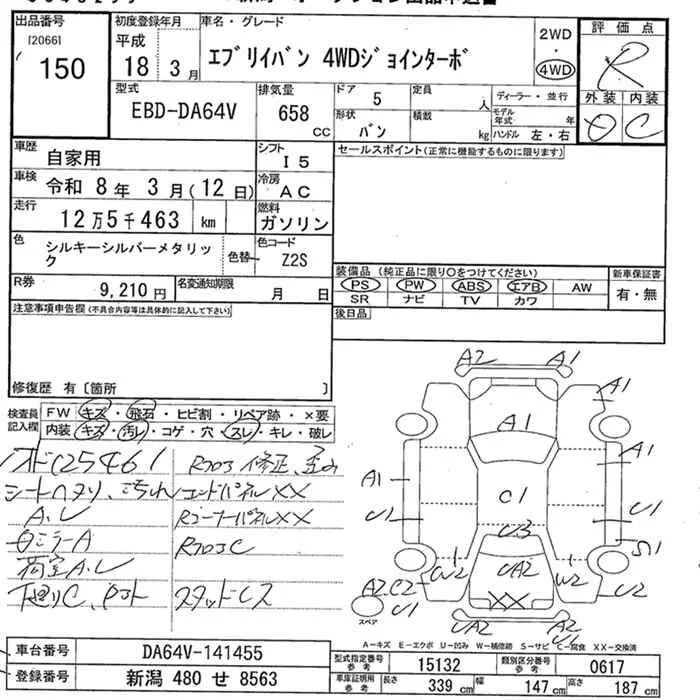 出品番号
[2066]
150
初度登録年月
平成
18 3月
車名・グレード
エブリイバン 4WDジョインターボ
2WD
・
4WD
評価点
R
外装 内装
C
型式
EBD-DA64V
排気量
658
cc
ドア
5
定員
人
ディーラー・並行
形状
バン
積載
kg
モデル年式 年
ハンドル 左・右
車歴
自家用
シフト
I5
セールスポイント(正常に機能するものに限ります)
車検
令和 8年 3月(12日)
冷房
AC
走行
12万5千463 km
燃料
ガソリン
色
シルキーシルバーメタリック
色替
色コード
Z2S
R券
9,210円
名変通知期限
月 日
装備品 (純正品に限り○をつけてください)
PS PW ABS エアB AW
SR ナビ TV カワ
新車保証書
有・無
後日品
注意事項申告欄(不具合内容等は具体的に記入して下さい)
修復歴 有〔箇所 〕
検査員記入欄
FW キズ・飛石・ヒビ割・リペア跡・×要
内装 キズ・汚レ・コゲ・穴・スレ・キレ・破レ
125461
シートヘタリ、汚れ
A.L
ミラーA
荷室A.L
下廻りC、
Rフロア修正、歪み
エンドパネルXX
RコーナーパネルXX
RフロアC
スタッドレス
A2 A1
A1
A1
A1
A1
U1
C1
U1
S1
U3
W2
UA2
W2
A2.C2
U1
U2
XX
UA2
U1
スペア
A-キズ E-エクボ U-凹み W-補修跡 S-サビ C-腐食 XX-交換済
車台番号
DA64V-141455
登録番号
新潟 480 せ 8563
型式指定番号
参考
15132
類別区分番号
参考
0617
車庫証明用
参考
長さ
339 cm
幅
147 cm
高さ
187 cm